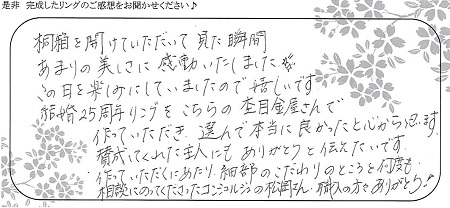 是非 完成したリングのご感想をお聞かせください♪
桐箱を開けていただいて見た瞬間
あまりの美しさに感動いたしました
この日を楽しみにしていましたので嬉しいです
結婚25周年リングをこちらの杢目金屋さんで
作っていただき 選んで本当に良かったと心から思います
賛成してくれた主人にもありがとうと伝えたいです
作っていただくにあたり、細部のこだわりのところを何度も
相談にのってくださったコンシェルジュの松岡さん、職人の方々ありがとう♪